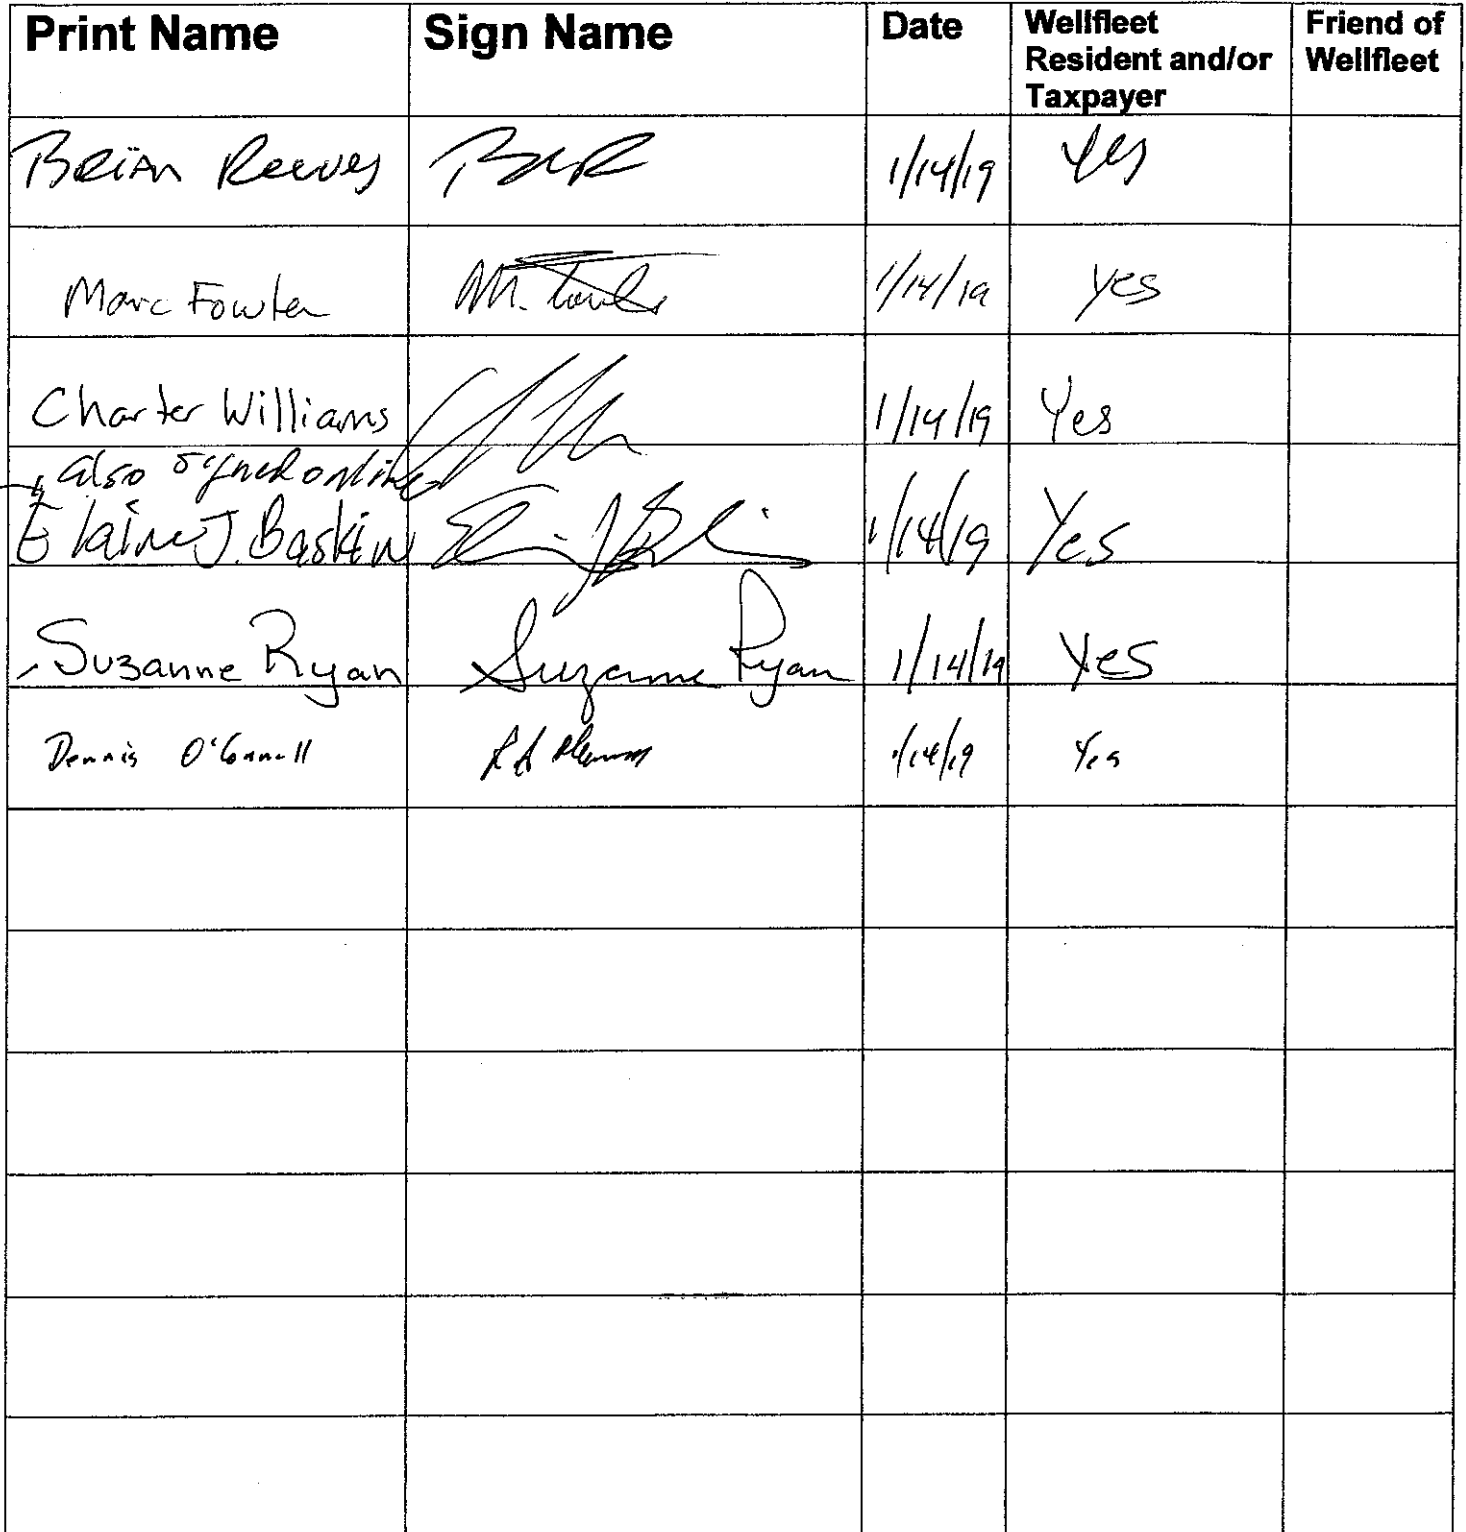 Print Name Sign Name Date Wellfleet Resident and/or Taxpayer Friend of Wellfleet
Brian Reeves 1/14/19 yes
Marc Fowler M. Fowler 1/14/19 yes
Charter Williams 1/14/19 Yes
also signed online
Elaine J. Baskin 1/14/19 Yes
Suzanne Ryan Suzanne Ryan 1/14/19 Yes
Dennis O'Connell 1/14/19 Yes